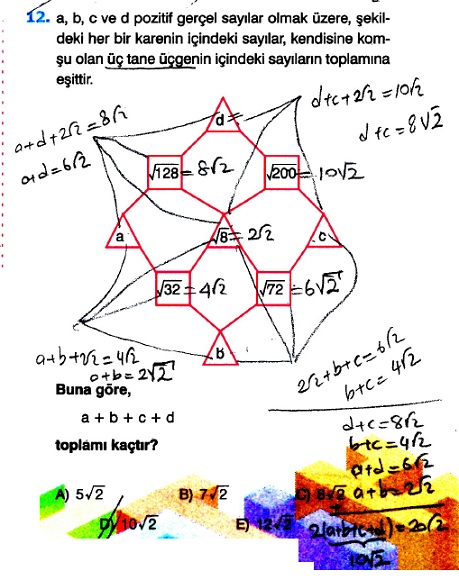 12. a, b, c ve d pozitif gerçel sayılar olmak üzere, şekil-
deki her bir karenin içindeki sayılar, kendisine kom-
şu olan üç tane üçgenin içindeki sayıların toplamına
eşittir.
a+d+2√2=8√2
a+d=6√2
d+c+2√2=10√2
d+c=8√2
d
√128=8√2
√200=10√2
a
√8=2√2
c
√32=4√2
√72=6√2
b
a+b+2√2=4√2
a+b=2√2
2√2+b+c=6√2
b+c=4√2
Buna göre,
a + b + c + d
toplamı kaçtır?
d+c=8√2
b+c=4√2
a+d=6√2
a+b=2√2
2(a+b+c+d)=20√2
10√2
A) 5√2 B) 7√2 C) 8√2
D) 10√2 E) 12√2